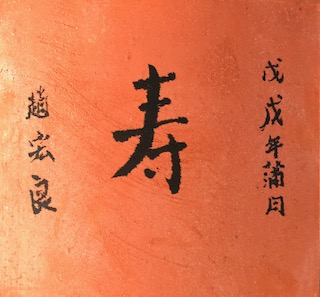 戊戌年蒲月
寿
趙宏良